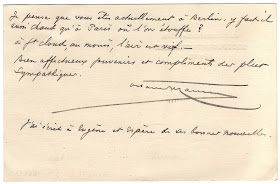 Je pense que vous êtes actuellement à Berlin. y fait-il
aussi chaud qu'à Paris où l'on étouffe ?
à St Cloud, au moins, l'air est vif. —
Bien affectueux souvenirs et compliments des plus
Sympathiques.
J'ai écrit à Eugène et Espère de ses bonnes nouvelles.